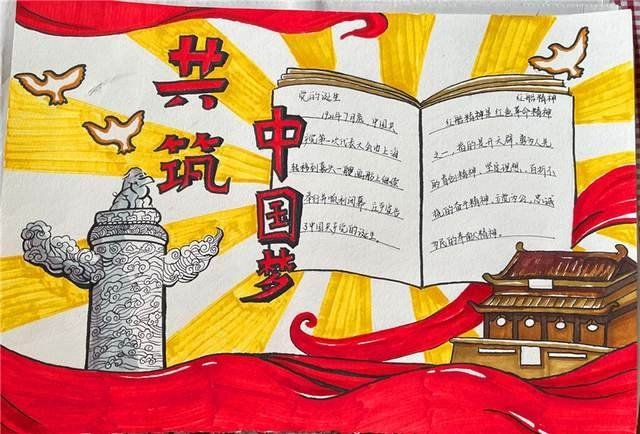 共筑
中国梦
党的诞生
1921年7月底,中国共
产党第一次代表大会由上海
转移到嘉兴一艘画舫上继续
举行并胜利闭幕,庄严宣告
了中国共产党的诞生。
红船精神
红船精神是红色革命精神
之一,指的是开天辟,敢为人先
的首创精神,坚定理想、百折不
挠的奋斗精神,立党为公、忠诚
为民的奉献精神。